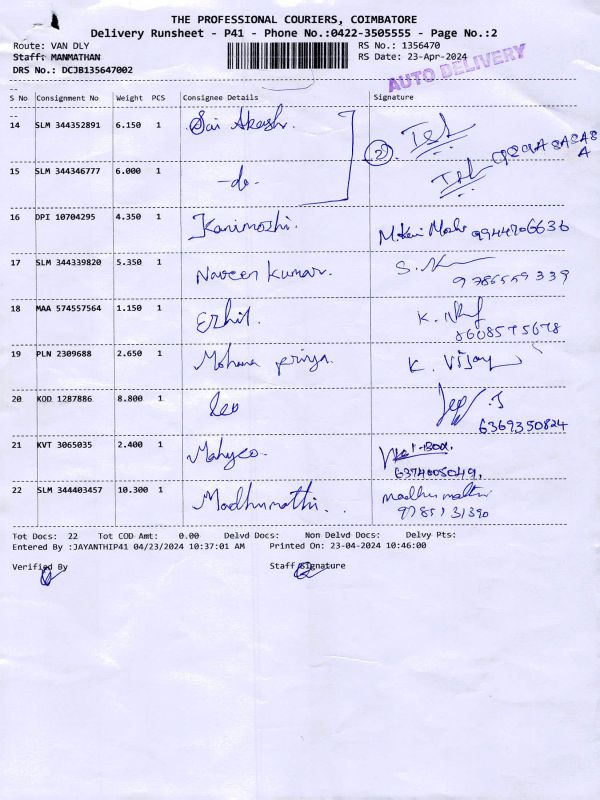 THE PROFESSIONAL COURIERS, COIMBATORE
Delivery Runsheet - P41 - Phone No.:0422-3505555 - Page No.:2
Route: VAN DLY
RS No.: 1356470
Staff: MANMATHAN
RS Date: 23-Apr-2024
DRS No.: DCJB135647002
AUTO DELIVERY
S No Consignment No Weight PCS Consignee Details Signature
14 SLM 344352891 6.150 1 Sai Akash.
15 SLM 344346777 6.000 1 -do-
16 DPI 10704295 4.350 1 Kanimozhi. 9944706636
17 SLM 344339820 5.350 1 Naveen Kumar. 9786559339
18 MAA 574557564 1.150 1 Ezhil. 8608575678
19 PLN 2309688 2.650 1 Mohana priya. K. Vijay
20 KOD 1287886 8.800 1 Leo 6369350824
21 KVT 3065035 2.400 1 Mahyco. 6374005049,
22 SLM 344403457 10.300 1 Madhumathi. Madhumathi
Tot Docs: 22 Tot COD Amt: 0.00 Delvd Docs: Non Delvd Docs: Delvy Pts:
Entered By :JAYANTHIP41 04/23/2024 10:37:01 AM Printed On: 23-04-2024 10:46:00
Verified By Staff Signature